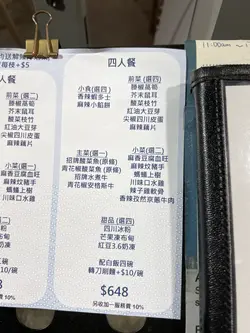 每枝+$5
人餐
前菜(選二)
藤椒萵筍
芥末鼠耳
酸菜枝竹
紅油大豆芽
尖椒四川皮蛋
麻辣藕片
小菜(選一)
麻香豆腐血旺
麻辣炆豬手
螞蟻上樹
川味口水雞
選二)
冰粉
布甸
奶凍
二碗
+$10/碗
務費 10%
四人餐
小食(選四)
香辣蝦多士
麻辣小餡餅
前菜(選四)
藤椒萵筍
芥末鼠耳
酸菜枝竹
紅油大豆芽
尖椒四川皮蛋
麻辣藕片
主菜(選一)
招牌酸菜魚(原條)
青花椒酸菜魚(原條)
招牌水煮牛
青花椒安格斯牛
小菜(選四)
麻香豆腐血旺
麻辣炆豬手
螞蟻上樹
川味口水雞
辣子雞軟骨
香辣孜然京蔥牛肉
甜品(選四)
四川冰粉
芒果凍布甸
紅豆3.6奶凍
配白飯四碗
轉刀削麵+$10/碗
$648
另收加一服務費 10%
11:00am